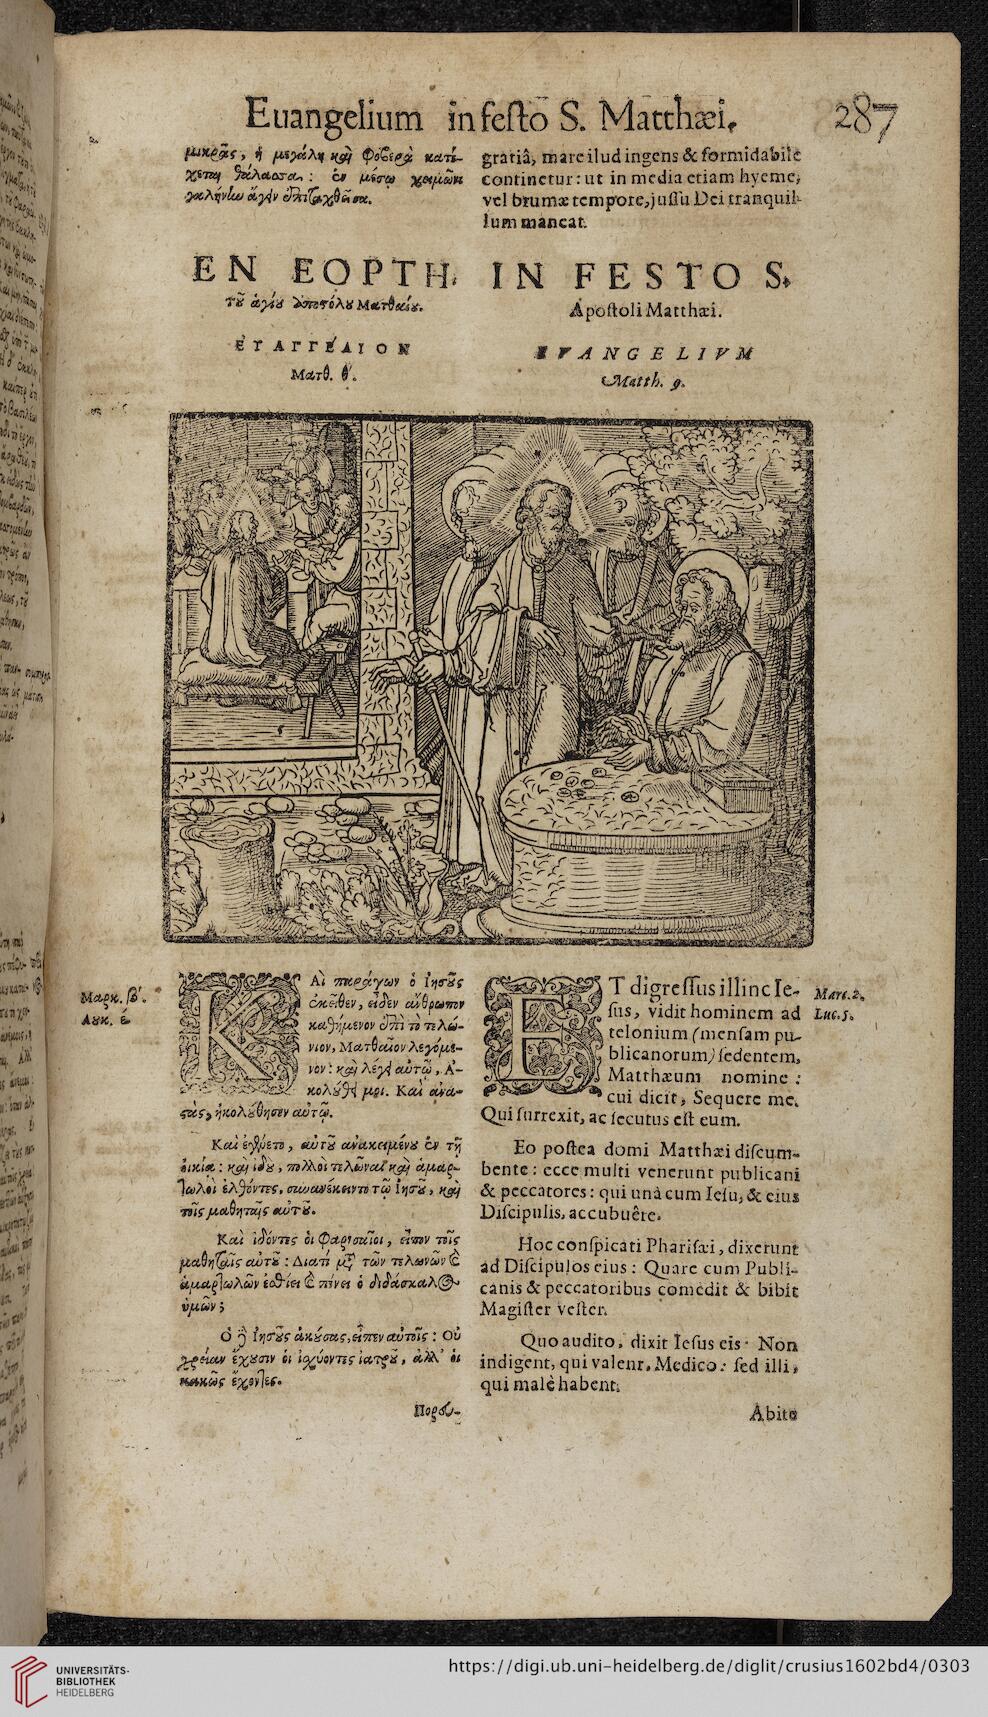 Euangelium in festo S. Matthæi.
287
μικρᾶς, ἡ μεγάλη καὶ φοβερὰ κατέ-
χεται θάλασσα: ἐν μέσῳ χειμῶνι
γαλήνην ἄγειν ἐπιταχθεῖσα.
gratiâ, mare illud ingens & formidabile
continetur: ut in media etiam hyeme,
vel brumæ tempore, jussu Dei tranquil-
lum maneat.
ΕΝ ΕΟΡΤΗ
τοῦ ἁγίου ἀποστόλου Ματθαίου.
ΕΥΑΓΓΕΛΙΟΝ
Ματθ. θ'.
IN FESTO S.
Apostoli Matthæi.
EVANGELIVM
Matth. 9.
Μαρκ. β'.
Λυκ. έ
ΚΑὶ παράγων ὁ Ἰησοῦς
ἐκεῖθεν, εἶδεν ἄνθρωπον
καθήμενον ἐπὶ τὸ τελώ-
νιον, Ματθαῖον λεγόμε-
νον: καὶ λέγει αὐτῷ, Ἀ-
κολούθει μοι. Καὶ ἀνα-
στὰς, ἠκολούθησεν αὐτῷ.
Καὶ ἐγένετο, αὐτοῦ ἀνακειμένου ἐν τῇ
οἰκίᾳ: καὶ ἰδοὺ, πολλοὶ τελῶναι καὶ ἁμαρ-
τωλοὶ ἐλθόντες, συνανέκειντο τῷ Ἰησοῦ, καὶ
τοῖς μαθηταῖς αὐτοῦ.
Καὶ ἰδόντες οἱ Φαρισαῖοι, εἶπον τοῖς
μαθηταῖς αὐτοῦ: Διατί μετὰ τῶν τελωνῶν καὶ
ἁμαρτωλῶν ἐσθίει καὶ πίνει ὁ διδάσκαλος
ὑμῶν;
Ὁ δὲ Ἰησοῦς ἀκούσας, εἶπεν αὐτοῖς: Οὐ
χρείαν ἔχουσιν οἱ ἰσχύοντες ἰατροῦ, ἀλλ' οἱ
κακῶς ἔχοντες.
Πορευ-
ET digressus illinc Ie-
sus, vidit hominem ad
telonium (mensam pu-
blicanorum) sedentem,
Matthæum nomine:
cui dicit, Sequere me.
Qui surrexit, ac secutus est eum.
Marc. 2.
Luc. 5.
Eo postea domi Matthæi discum-
bente: ecce multi venerunt publicani
& peccatores: qui unà cum Iesu, & eius
Discipulis, accubuêre.
Hoc conspicati Pharisæi, dixerunt
ad Discipulos eius: Quare cum Publi-
canis & peccatoribus comedit & bibit
Magister vester.
Quo audito, dixit Iesus eis: Non
indigent, qui valent, Medico: sed illi,
qui malè habent.
Abite
UNIVERSITÄTS-
BIBLIOTHEK
HEIDELBERG
https://digi.ub.uni-heidelberg.de/diglit/crusius1602bd4/0303